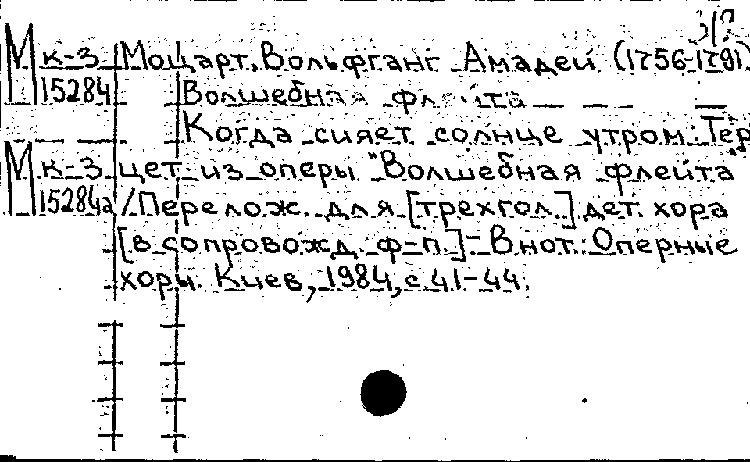 31?
М к-3 Моцарт, Вольфганг Амадей (1756-1791).
15284 Волшебная флейта
Когда сияет солнце утром. Тер
М к-3 цет из оперы "Волшебная флейта".
15284а /Перелож. для [трехгол.] дет. хора
[в сопровожд. ф-п.] - В нот.: Оперные
хоры. Киев, 1984, с. 41-44.